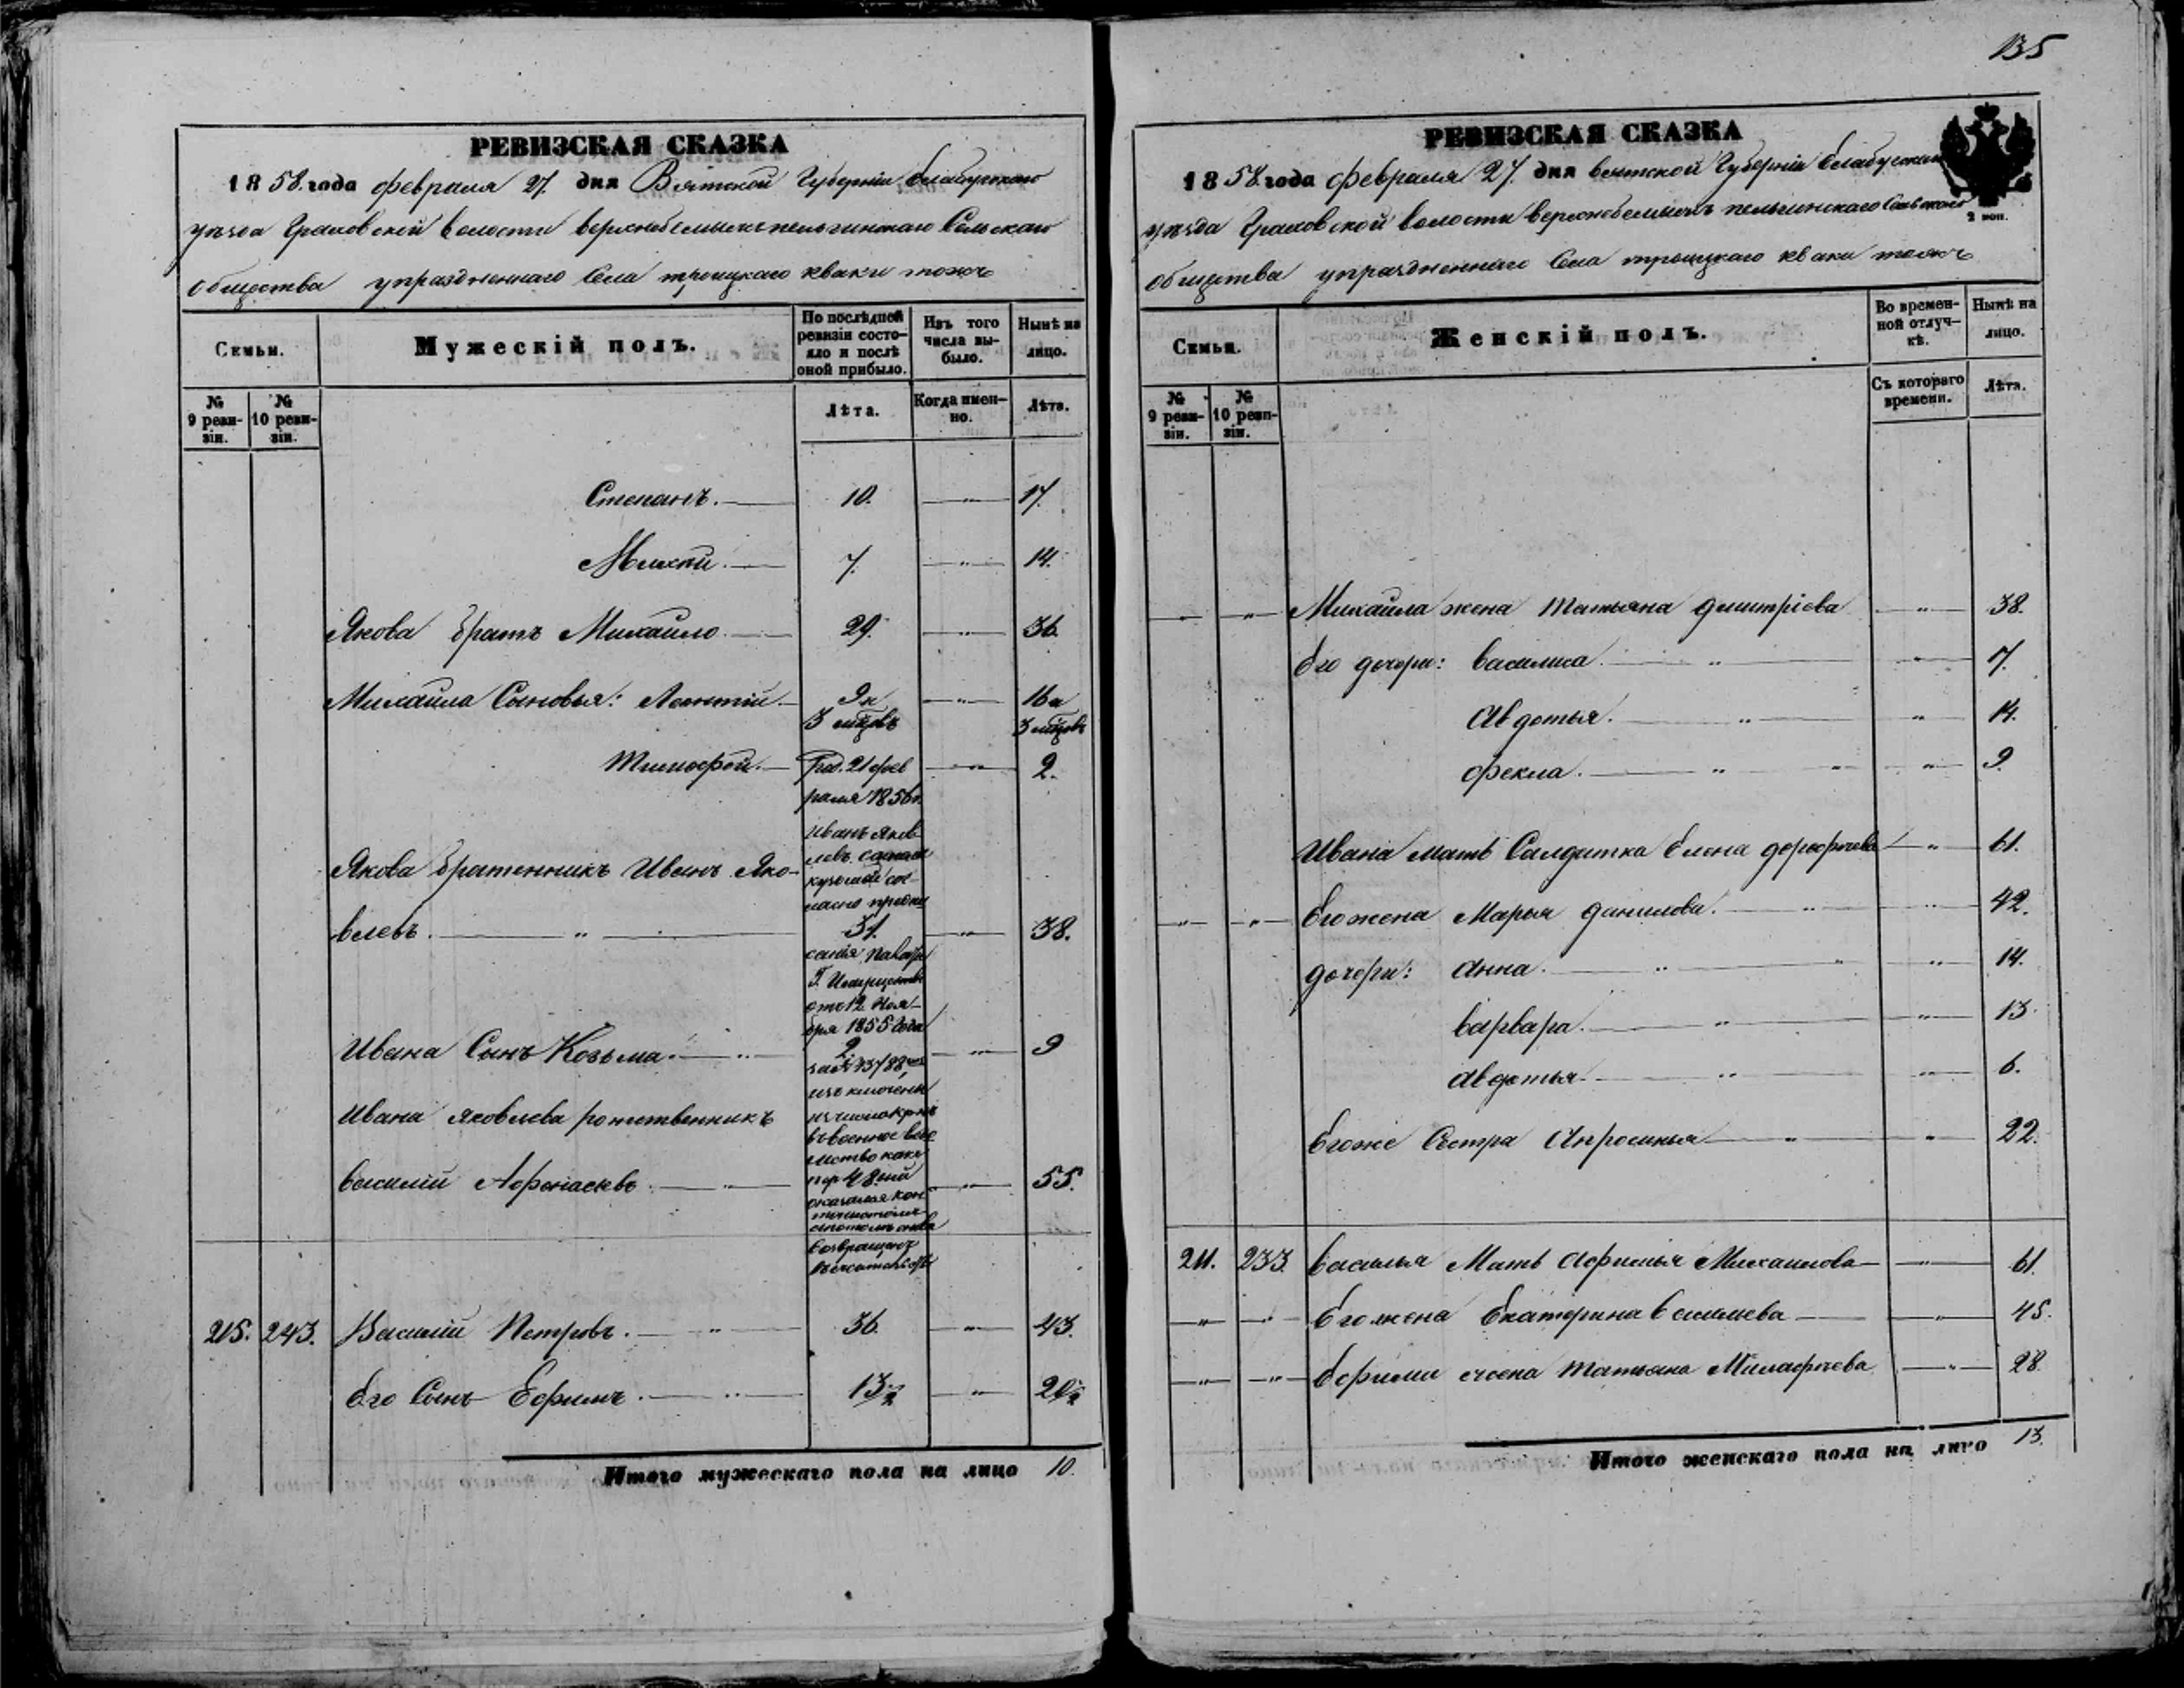 135
РЕВИЗСКАЯ СКАЗКА
1858 года февраля 27 дня Вятской Губерніи Елабугскаго
уѣзда Граховской волости верхнебемыжъ пельгинскаго Сельскаго
общества упраздненнаго Села троицкаго кваки тожъ
Семьи.
Мужескій полъ.
По послѣдней ревизіи состояло и послѣ оной прибыло.
Изъ того числа выбыло.
Нынѣ на лицо.
№ 9 ревизіи.
№ 10 ревизіи.
Лѣта.
Когда именно.
Лѣта.
Степанъ. 10. " 17.
7. " 14.
Якова братъ Михайло. 29. " 36.
Михайла Сыновья: Леонтій. 9 и " 16 и
3 3
Тимофей. Род. 21 фев " 2.
раля 1856 г.
Иванъ Яков
левъ
Якова братенникъ Иванъ Яко-
влевъ. " 31. " 38.
отъ 12 Ноя-
бря 1855 Года
Ивана Сынъ Козьма. " 2 " 9
Ивана Яковлева родственникъ
въ военное вѣдо
мство какъ
Василій Афонасьевъ. " 48 " 55.
возвращенъ
215. 243. Василій Петровъ. " 36. " 43.
Его Сынъ Ефимъ. " 13½ " 20½
Итого мужескаго пола на лицо 10.
РЕВИЗСКАЯ СКАЗКА
1858 года февраля 27 дня вятской Губерніи Елабугскаго
уѣзда Граховской волости верхнебемыжъ пельгинскаго Сельскаго
общества упраздненнаго Села троицкаго кваки тожъ
2 коп.
Семьи.
Женскій полъ.
Во временной отлучкѣ.
Нынѣ на лицо.
№ 9 ревизіи.
№ 10 ревизіи.
Съ котораго времени.
Лѣта.
" " Михайла жена Татьяна Дмитріева " 38.
Его дочери: Василиса. " " 17.
Авдотья. " " 14.
Фекла. " " " 9.
Ивана мать Салдатка Елена Дорофѣева " 61.
" " Его жена Марья Данилова. " " 42.
дочери: Анна. " " " 14.
Варвара. " " 13.
Авдотья. " " 6.
Егоже Сестра Апросинья " " 22.
211. 233. Василья Мать Афимья Михаилова " 61.
" " Его жена Екатерина Васильева " 45.
" " Ефима жена Татьяна Малафѣева " 28.
Итого женскаго пола на лицо 13.